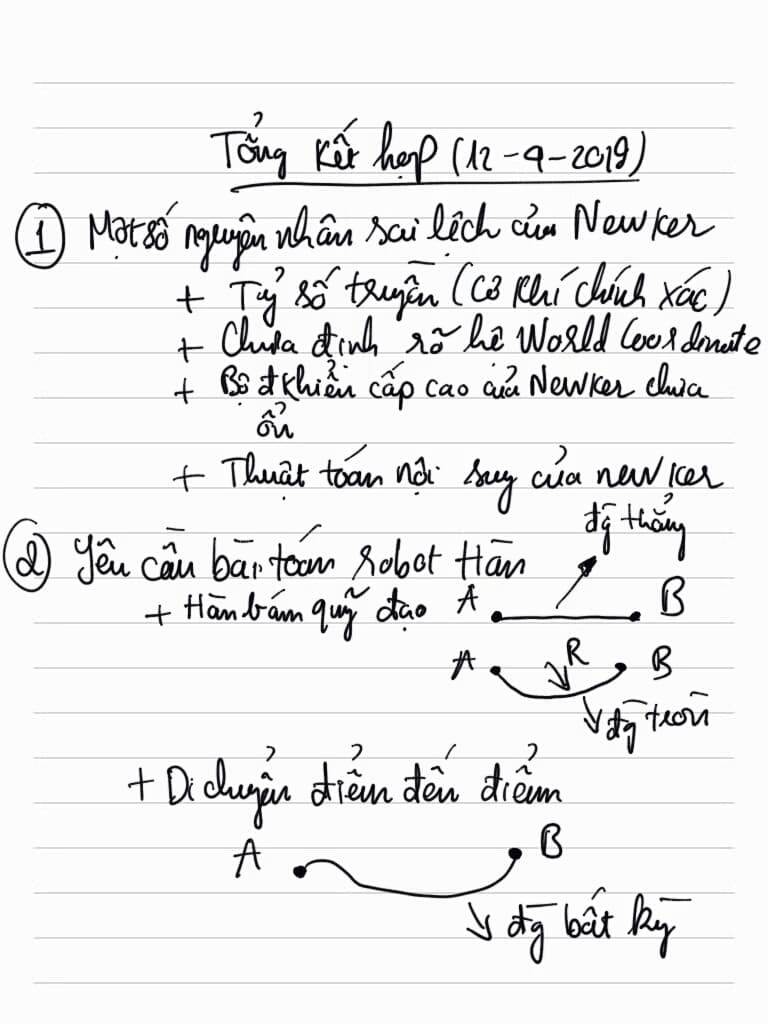 Tổng kết họp (12-9-2019)
① Một số nguyên nhân sai lệch của Newker
+ Tỷ số truyền (Cơ khí chính xác)
+ Chưa định rõ hệ World Coordinate
+ Bộ đkhiển cấp cao của Newker chưa
ổn
+ Thuật toán nội suy của newker
đg thẳng
② Yêu cầu bài toán robot Hàn
+ Hàn bám quỹ đạo A B
A R B
đg tròn
+ Di chuyển điểm đến điểm
A B
đg bất kỳ